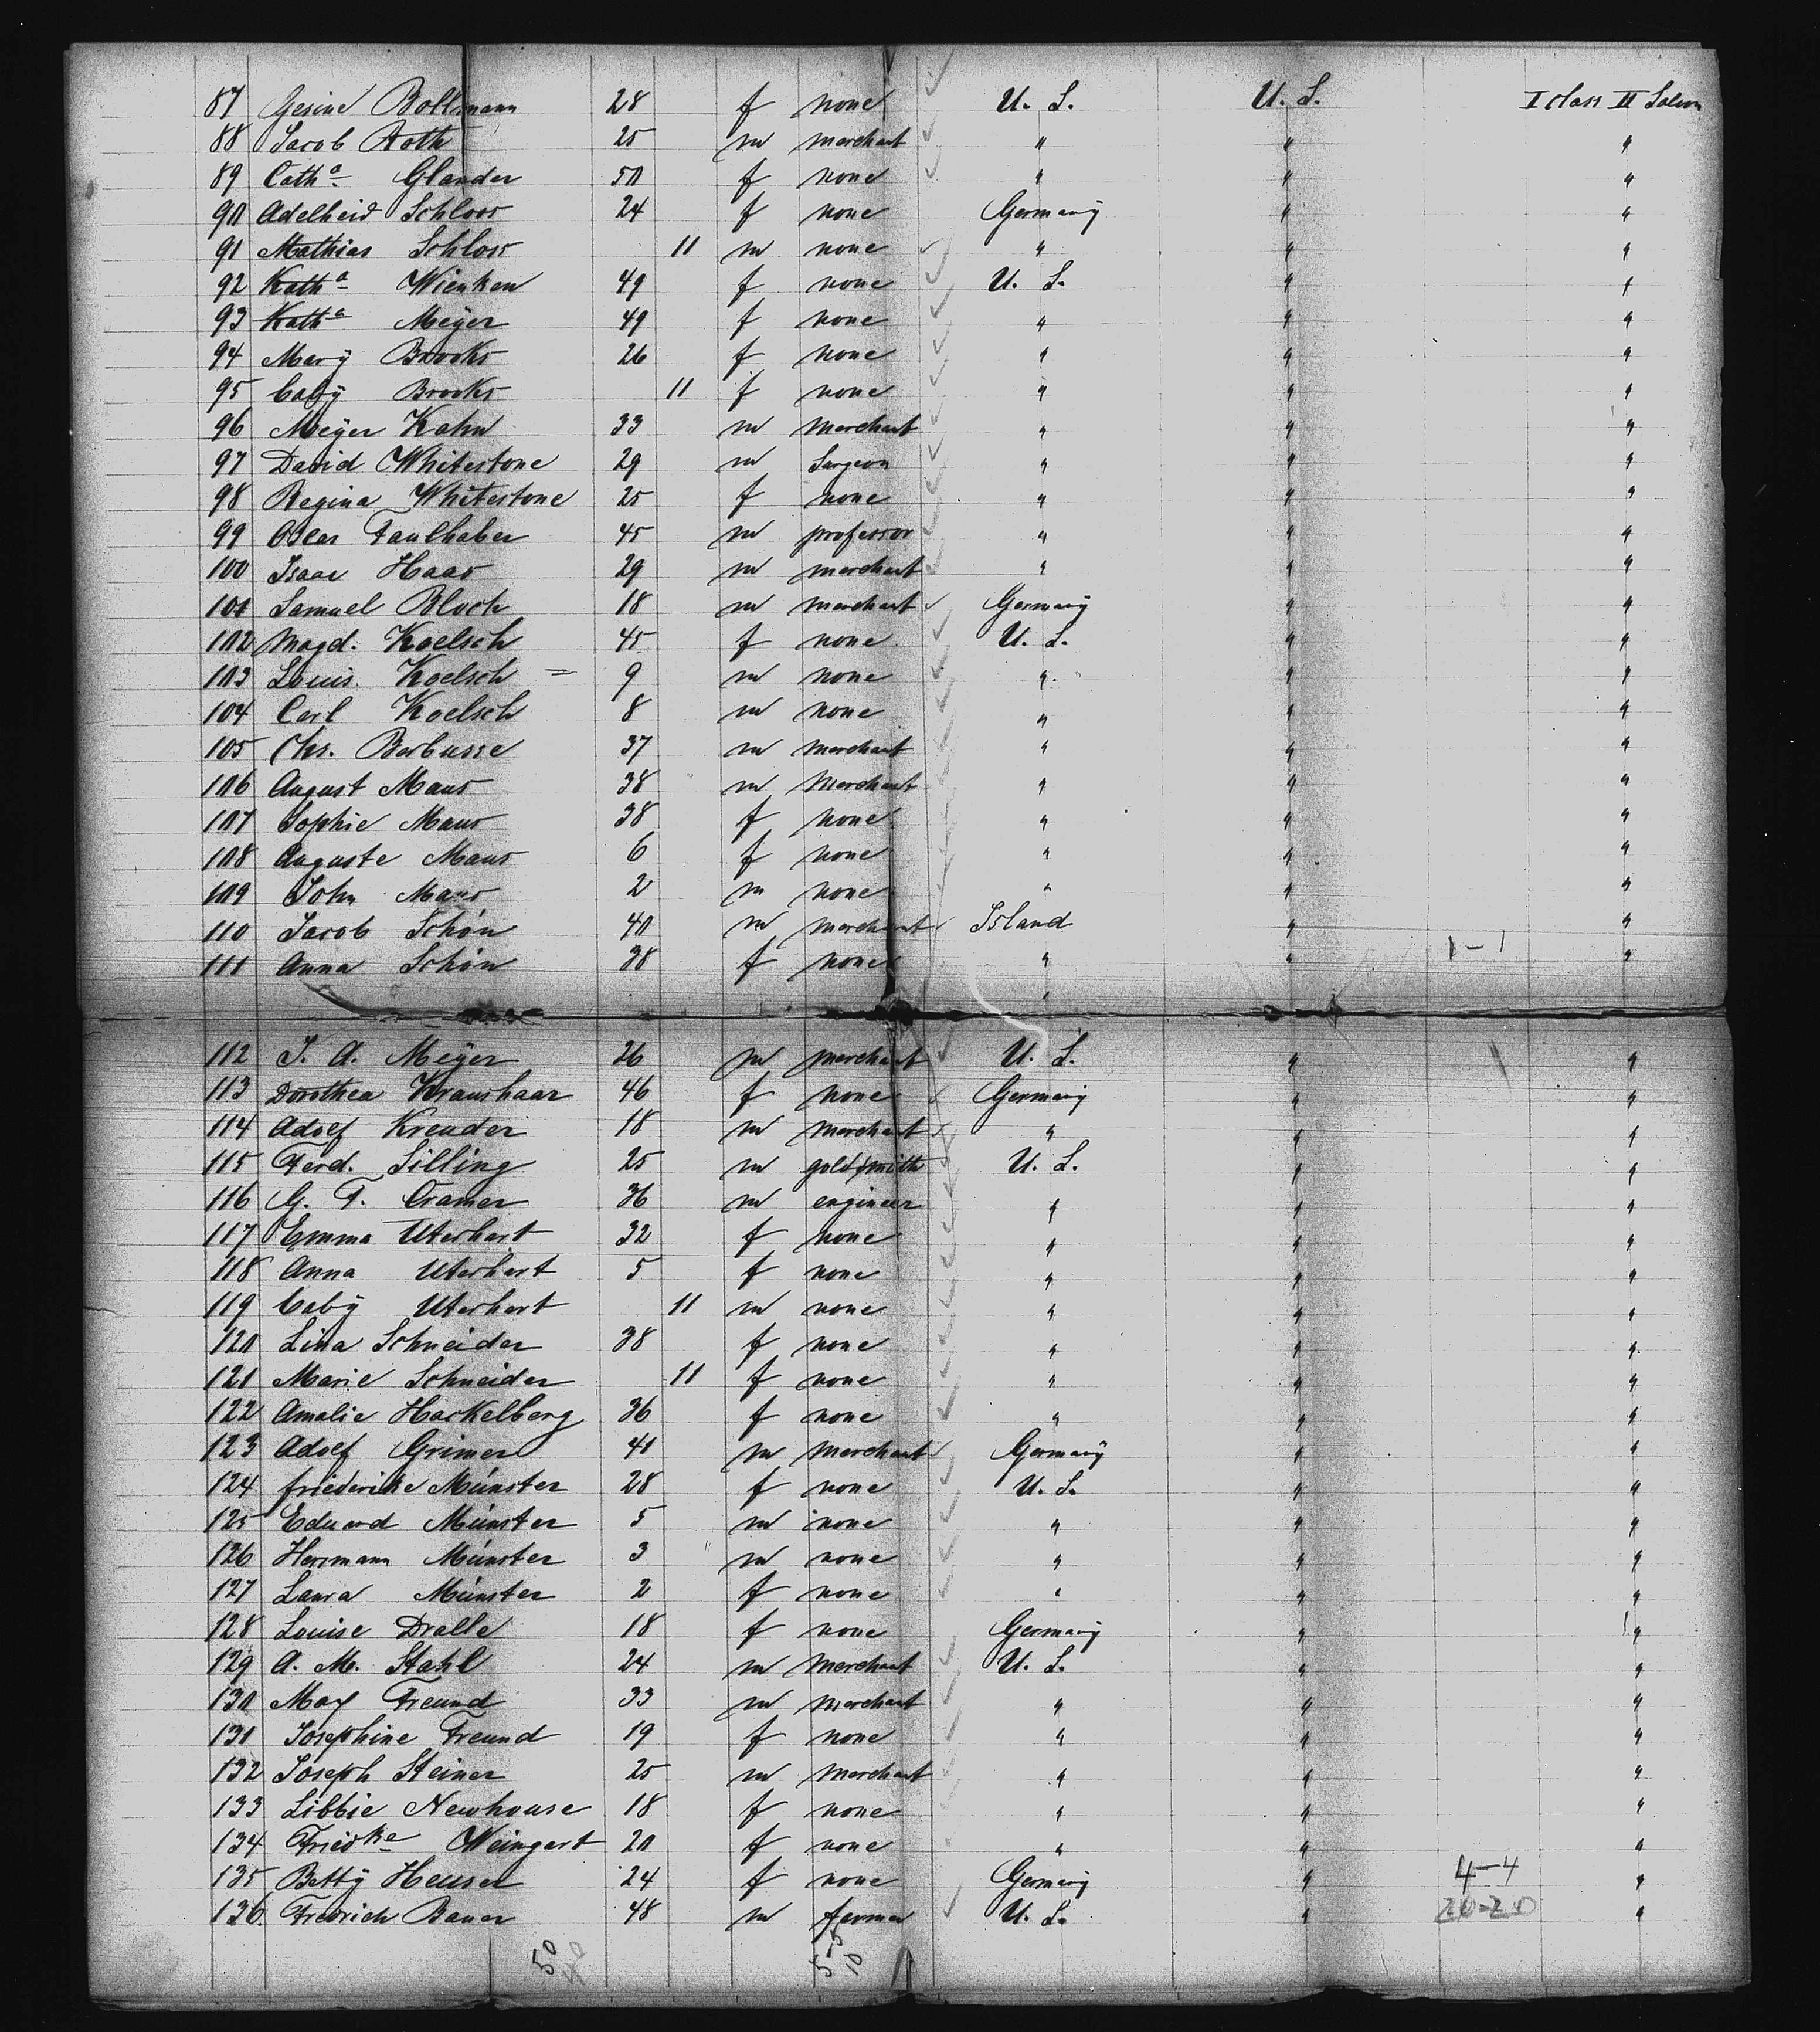 87 Gesine Boltzmann 28 f none U. S. U. S. I class II Saloon
88 Jacob Roth 25 m merchant " " "
89 Catha Glander 50 f none " " "
90 Adelheid Schloss 24 f none Germany " "
91 Mathias Schloss 11 m none " " "
92 Katha Wienken 49 f none U. S. " "
93 Katha Meÿer 49 f none " " "
94 Marÿ Brooks 26 f none " " "
95 babÿ Brooks 11 f none " " "
96 Meÿer Kahn 33 m merchant " " "
97 David Whitestone 29 m Surgeon " " "
98 Regina Whitestone 25 f none " " "
99 Oscar Faulhaber 45 m professor " " "
100 Isaac Haas 29 m merchant " " "
101 Samuel Bloch 18 m merchant Germanÿ " "
102 Magd. Koelsch 45 f none U. S. " "
103 Louis Koelsch = 9 m none " " "
104 Carl Koelsch 8 m none " " "
105 Chs. Berbusse 37 m merchant " " "
106 August Maus 38 m Merchant " " "
107 Sophie Maus 38 f none " " "
108 Auguste Maus 6 f none " " "
109 John Maus 2 m none " " "
110 Jacob Schön 40 m merchant Island " "
111 Anna Schön 38 f none " " 1-1 "
112 J. A. Meÿer 26 m merchant U. S. " "
113 Dorothea Kraushaar 46 f none Germanÿ " "
114 Adolf Kreuder 18 m merchant " " "
115 Ferd. Silling 25 m goldsmith U. S. " "
116 G. F. Cramer 36 m engineer " " "
117 Emma Uterhart 32 f none " " "
118 Anna Uterhart 5 f none " " "
119 babÿ Uterhart 11 m none " " "
120 Lina Schneider 38 f none " " "
121 Marie Schneider 11 f none " " "
122 Amalie Hackelberg 36 f none " " "
123 Adolf Grimer 41 m merchant Germanÿ " "
124 friederike Münster 28 f none U. S. " "
125 Eduard Münster 5 m none " " "
126 Herrmann Münster 3 m none " " "
127 Laura Münster 2 f none " " "
128 Louise Dralle 18 f none Germanÿ " "
129 A. M. Stahl 24 m merchant U. S. " "
130 Max Freund 33 m merchant " " "
131 Josephine Freund 19 f none " " "
132 Joseph Steiner 25 m merchant " " "
133 Libbie Newhouse 18 f none " " "
134 Friedke Weingart 20 f none " " "
135 Bettÿ Heuser 24 f none Germanÿ " 4-4 "
136 Fredrich Bauer 48 m farmer U. S. " 20-20 "
50
5-5
10